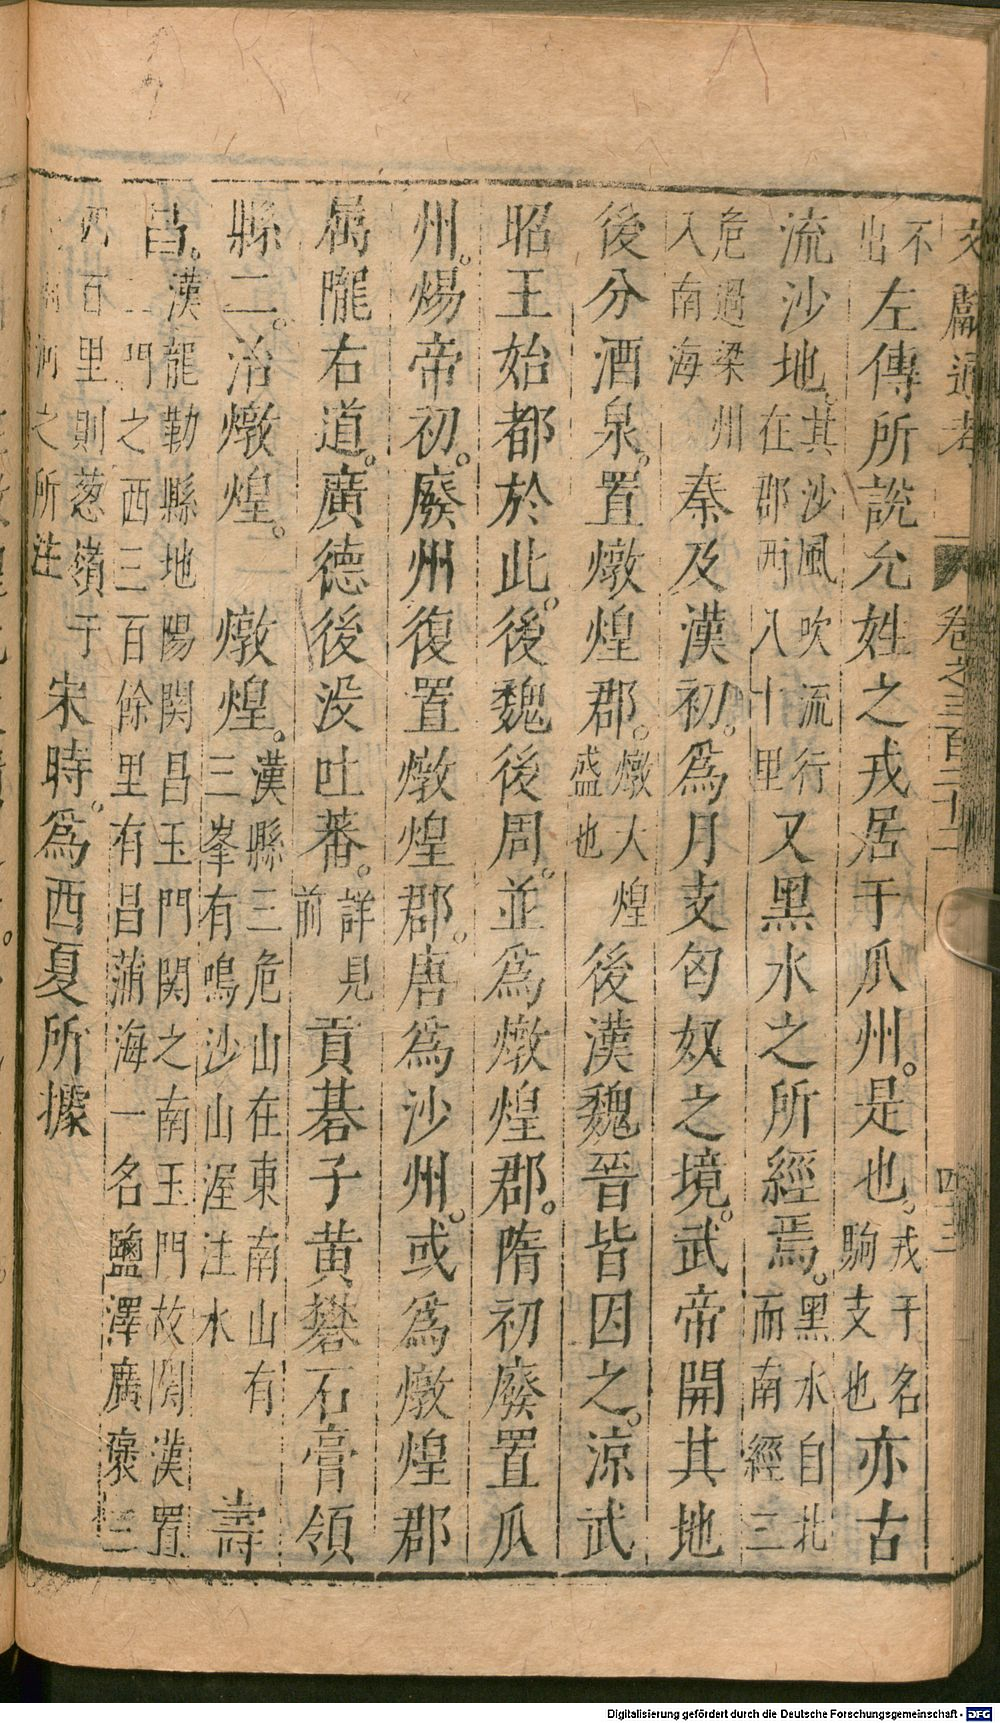 文獻通考 卷之三百二十二 四十三
不出左傳所說允姓之戎居于瓜州。是也。戎子名駒支也亦古
流沙地。其沙風吹流行在郡西八十里又黑水之所經焉。黑水自北而南經三
危過梁州入南海 秦及漢初。爲月支匈奴之境。武帝開其地
後分酒泉。置燉煌郡。燉大煌盛也後漢魏晉皆因之。涼武
昭王始都於此。後魏後周。並爲燉煌郡。隋初廢置瓜
州。煬帝初。廢州復置燉煌郡。唐爲沙州。或爲燉煌郡
屬隴右道。廣德後没吐蕃。詳見前貢碁子黄礬石膏領
縣二。治燉煌。 燉煌。漢縣三危山在東南山有三峯有鳴沙山渥洼水 壽
昌。漢龍勒縣地陽関昌玉門関之南玉門故関漢置二門之西三百餘里有昌蒲海一名鹽澤廣褒三
四百里則葱嶺于河之所注宋時。爲西夏所據
Digitalisierung gefördert durch die Deutsche Forschungsgemeinschaft - DFG